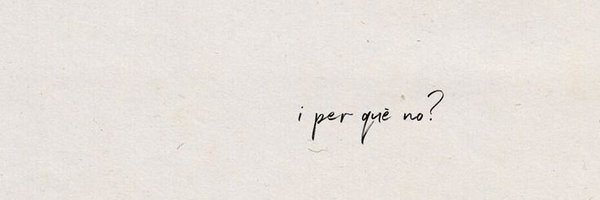 i per què no?